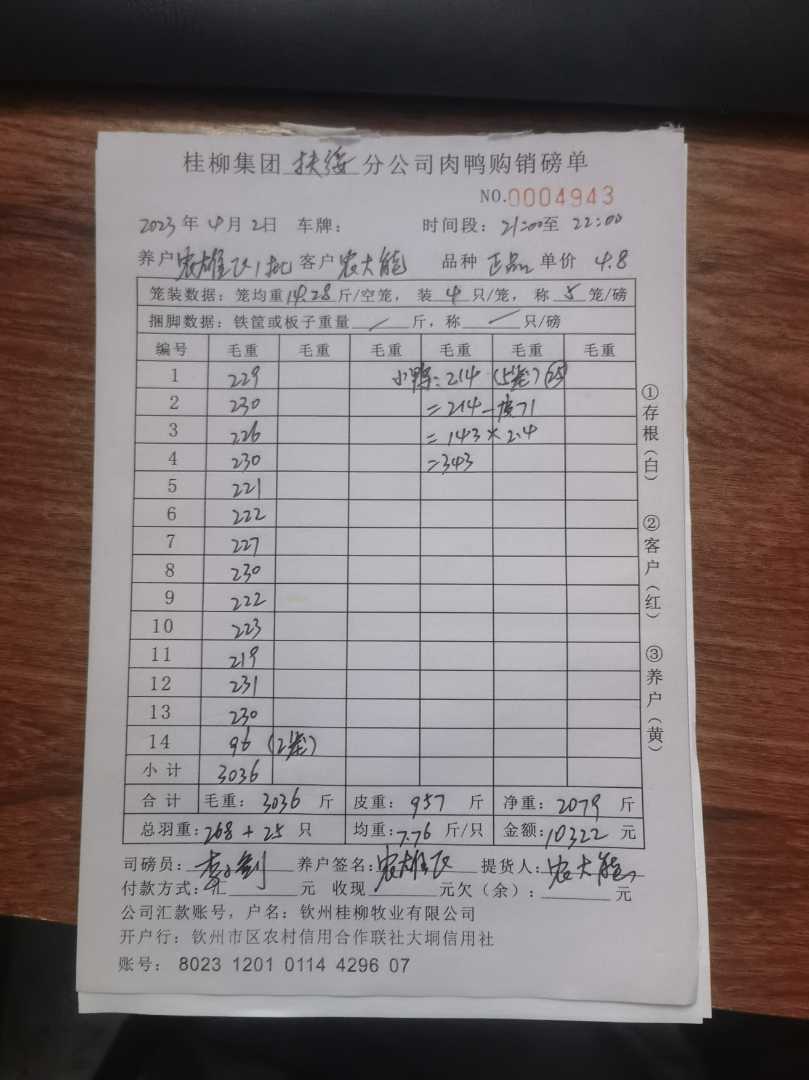 桂柳集团 扶绥 分公司肉鸭购销磅单
NO.0004943
2023年 4月 2日 车牌: 时间段: 21:00至 22:00
养户 农雄飞1批 客户 农大能 品种 正品 单价 4.8
笼装数据: 笼均重 14.28 斤/空笼, 装 4 只/笼, 称 5 笼/磅
捆脚数据: 铁筐或板子重量 / 斤, 称 / 只/磅
编号 毛重 毛重 毛重 毛重 毛重 毛重
1 229 小鸭: 214 (5笼) 25
2 230 =214-皮71
3 226 =143×2.4
4 230 =343
5 221
6 222
7 227
8 230
9 222
10 223
11 219
12 231
13 230
14 96 (2笼)
小计 3036
合计 毛重: 3036 斤 皮重: 957 斤 净重: 2079 斤
总羽重: 268 + 25 只 均重: 7.76 斤/只 金额: 10322 元
司磅员: 养户签名: 农雄飞 提货人: 农大能
付款方式: 汇 元 收现 元欠(余): 元
公司汇款账号, 户名: 钦州桂柳牧业有限公司
开户行: 钦州市区农村信用合作联社大垌信用社
账号: 8023 1201 0114 4296 07
①存根(白)
②客户(红)
③养户(黄)